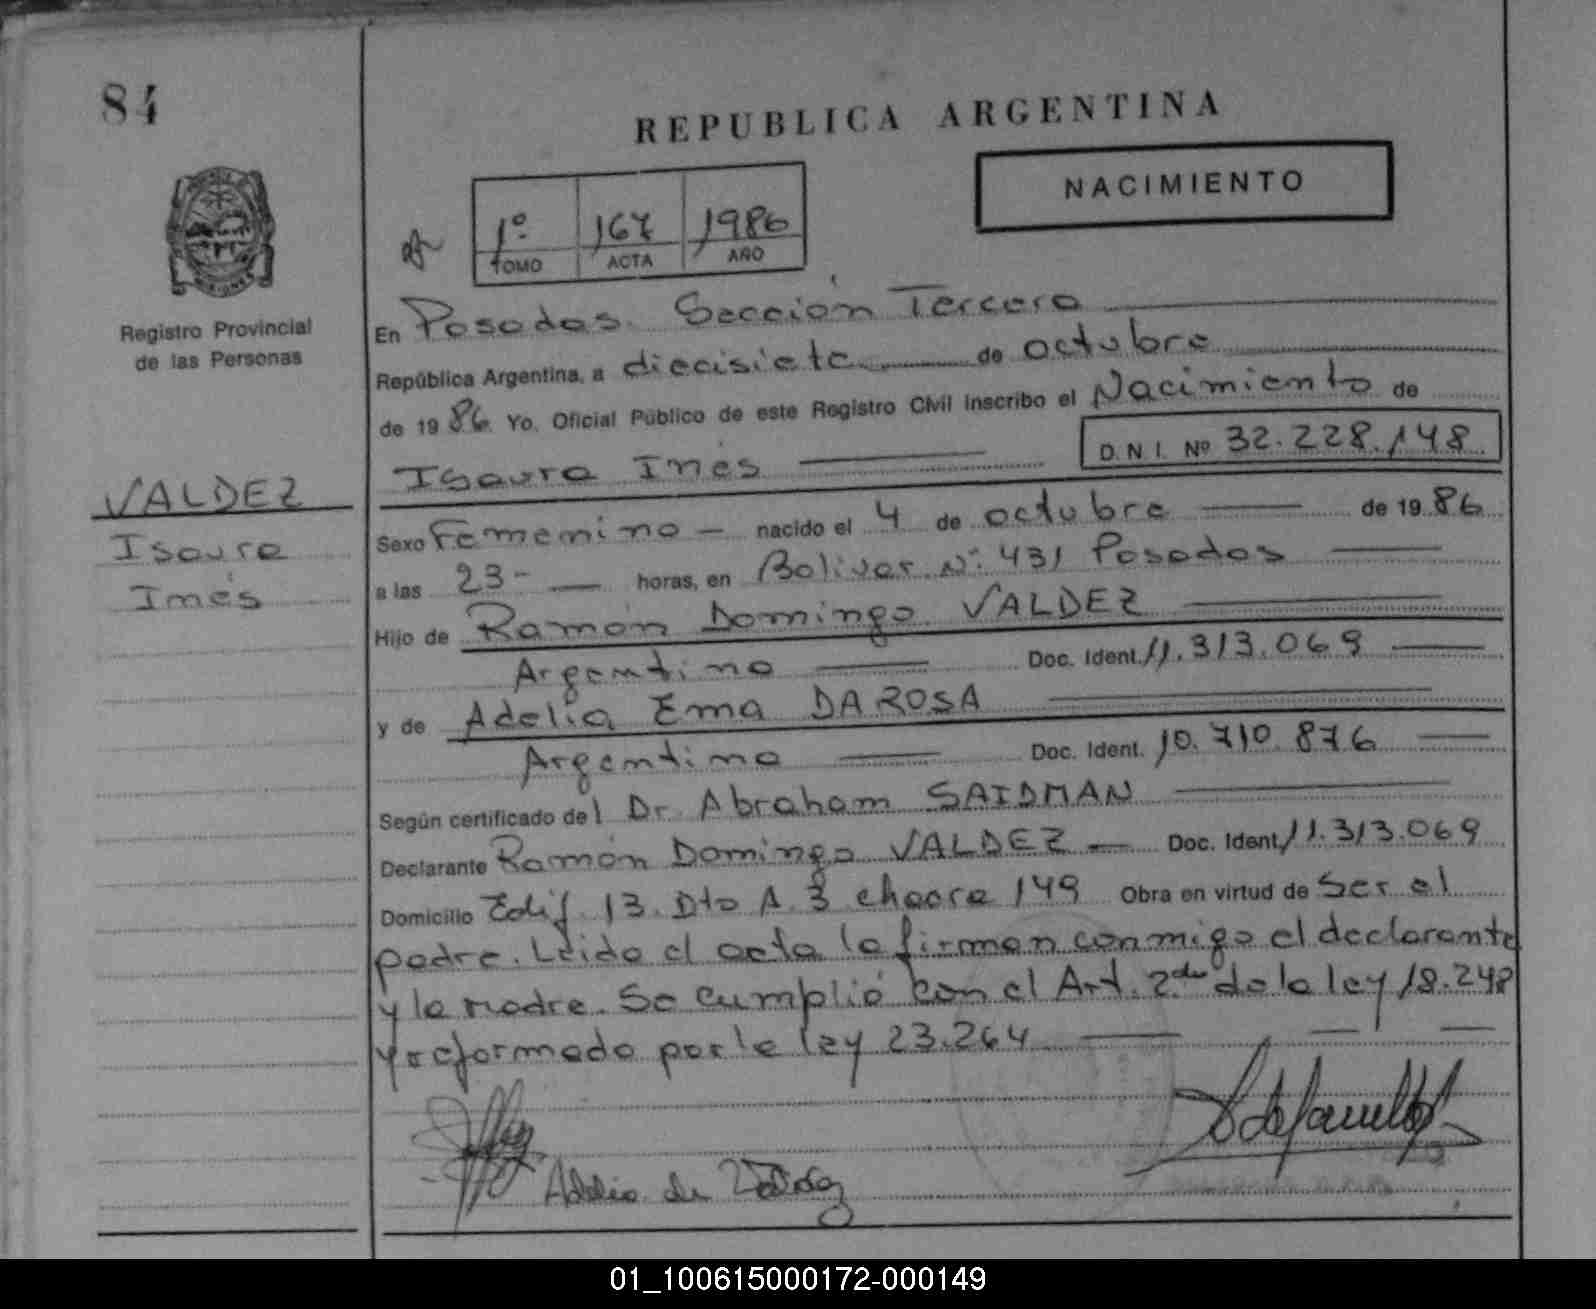 84
REPUBLICA ARGENTINA
NACIMIENTO
1º 167 1986
TOMO ACTA AÑO
Registro Provincial
de las Personas
VALDEZ
Isaura
Inés
En Posadas. Sección Tercera
República Argentina, a diecisiete de octubre
de 1986. Yo. Oficial Público de este Registro Civil inscribo el Nacimiento de
Isaura Inés D.N.I. Nº 32.228.148
Sexo Femenino - nacido el 4 de octubre de 1986
a las 23- horas, en Bolivar Nº 431 Posadas
Hijo de Ramón Domingo VALDEZ
Argentino Doc. Ident. 11.313.069
y de Adelia Ema DAROSA
Argentina Doc. Ident. 10.710.876
Según certificado del Dr. Abraham SAIDMAN
Declarante Ramón Domingo VALDEZ - Doc. Ident. 11.313.069
Domicilio Edif. 13. Dto A. 3 chacra 149 Obra en virtud de ser el
padre. Leida el acta la firman conmigo el declarante
y la madre. Se cumplió con el Art. 2do de la ley 18.248
y reformado por la ley 23.264
Adelia de Valdez
01_100615000172-000149